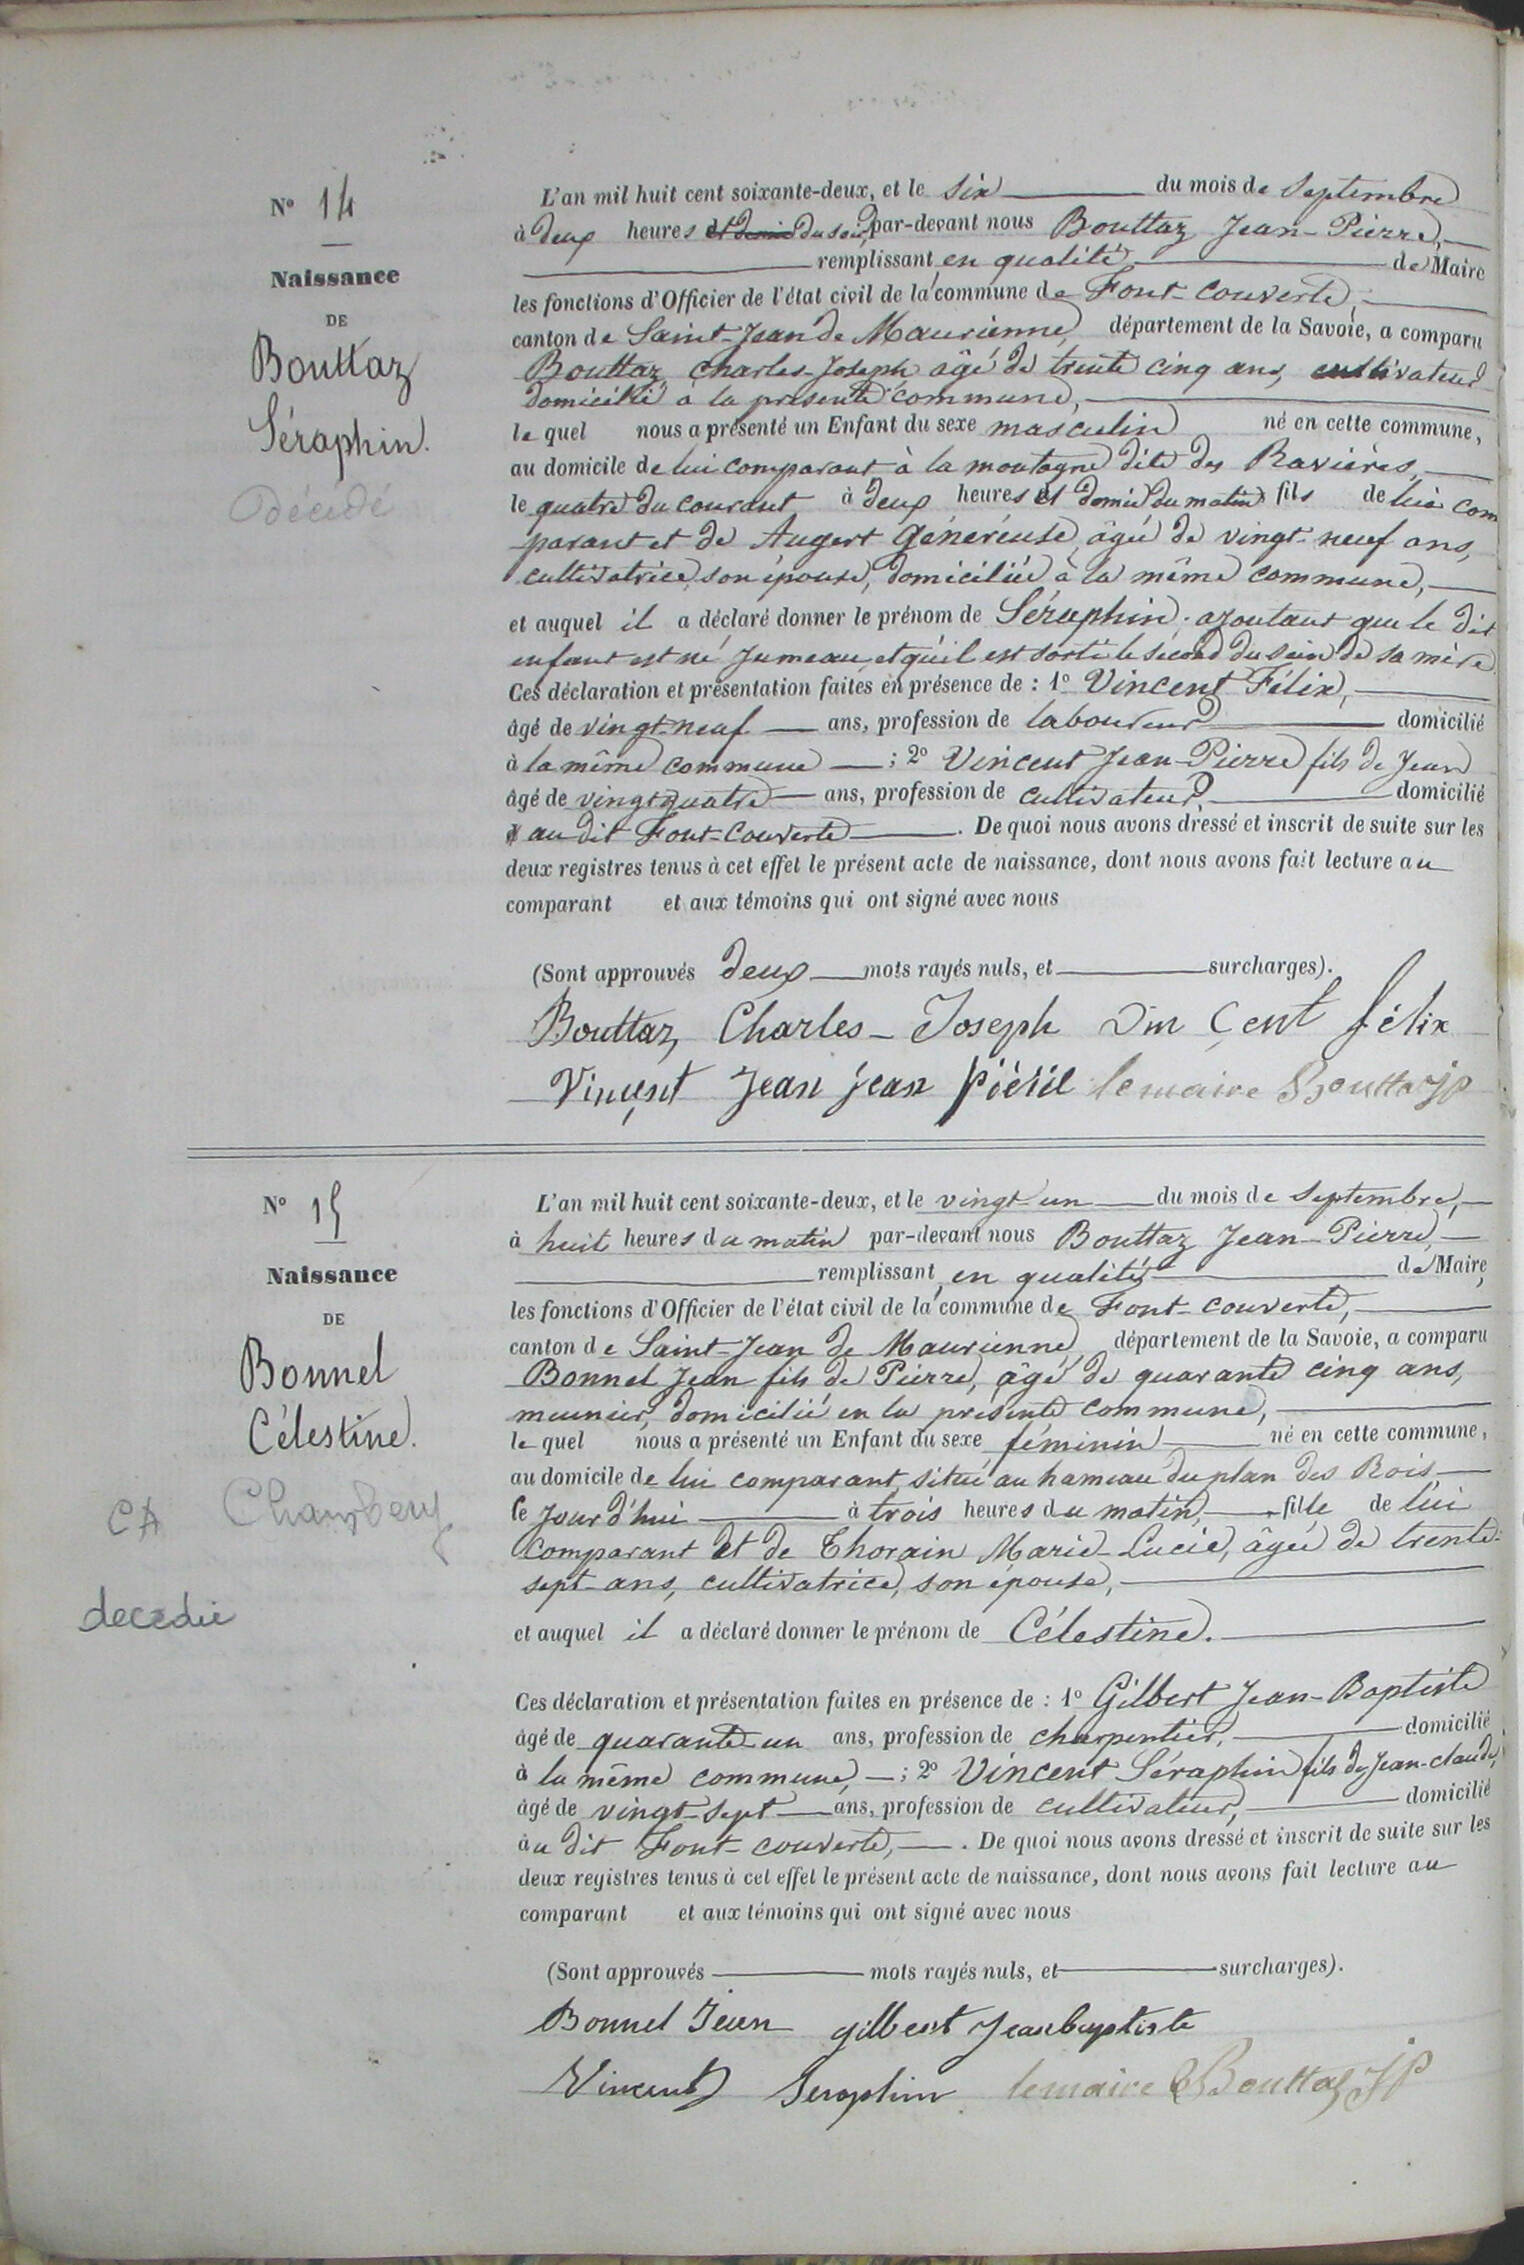 N° 14
Naissance
DE
Bouttaz
Séraphin.
Décédé
L'an mil huit cent soixante-deux, et le six du mois de Septembre
à deux heures et demie du soir, par-devant nous Bouttaz Jean-Pierre,
remplissant, en qualité de Maire
les fonctions d'Officier de l'état civil de la commune de Font-Couverte,
canton de Saint-Jean de Maurienne, département de la Savoie, a comparu
Bouttaz Charles-Joseph âgé de trente cinq ans, cultivateur
domicilié à la présente commune,
le quel nous a présenté un Enfant du sexe masculin né en cette commune,
au domicile de lui comparant à la montagne dite des Ravières,
le quatre du courant à deux heures et demie du matin fils de lui com
parant et de Augert Généreuse, âgée de vingt-neuf ans,
cultivatrice, son épouse, domiciliée à la même commune,
et auquel il a déclaré donner le prénom de Séraphin. ajoutant que le dit
enfant est né Jumeau, et qu'il est sorti le sécond du sein de sa mère
Ces déclaration et présentation faites en présence de : 1° Vincent Félix,
âgé de vingt-neuf ans, profession de laboureur domicilié
à la même commune ; 2° Vincent Jean-Pierre fils de Jean
âgé de vingt quatre ans, profession de cultivateur, domicilié
au dit Font-Couverte. De quoi nous avons dressé et inscrit de suite sur les
deux registres tenus à cet effet le présent acte de naissance, dont nous avons fait lecture au
comparant et aux témoins qui ont signé avec nous
(Sont approuvés deux mots rayés nuls, et surcharges).
Bouttaz Charles-Joseph Vin Cent félix
Vincent Jean jean piérre le maire Bouttaz JP
N° 15
Naissance
DE
Bonnel
Célestine.
CA Chambery
decedée
L'an mil huit cent soixante-deux, et le vingt-un du mois de Septembre,
à huit heures du matin par-devant nous Bouttaz Jean-Pierre,
remplissant, en qualité de Maire,
les fonctions d'Officier de l'état civil de la commune de Font-couverte,
canton de Saint-Jean de Maurienne, département de la Savoie, a comparu
Bonnel Jean fils de Pierre, âgé de quarante cinq ans,
meunier, domicilié en la présente commune,
le quel nous a présenté un Enfant du sexe féminin né en cette commune,
au domicile de lui comparant, situé au hameau du plan des Rois,
le jourd'hui à trois heures du matin, fille de lui
comparant et de Thorain Marie-Lucie, âgée de trente-
sept-ans, cultivatrice, son épouse,
et auquel il a déclaré donner le prénom de Célestine.
Ces déclaration et présentation faites en présence de : 1° Gilbert Jean-Baptiste
âgé de quarante-un ans, profession de charpentier, domicilié
à la même commune, ; 2° Vincent Séraphin fils de Jean-claude,
âgé de vingt-sept ans, profession de cultivateur, domicilié
au dit Font-couverte, . De quoi nous avons dressé et inscrit de suite sur les
deux registres tenus à cet effet le présent acte de naissance, dont nous avons fait lecture au
comparant et aux témoins qui ont signé avec nous
(Sont approuvés mots rayés nuls, et surcharges).
Bonnel Jean gilbert Jeanbaptiste
Vincent Seraphin le maire Bouttaz JP